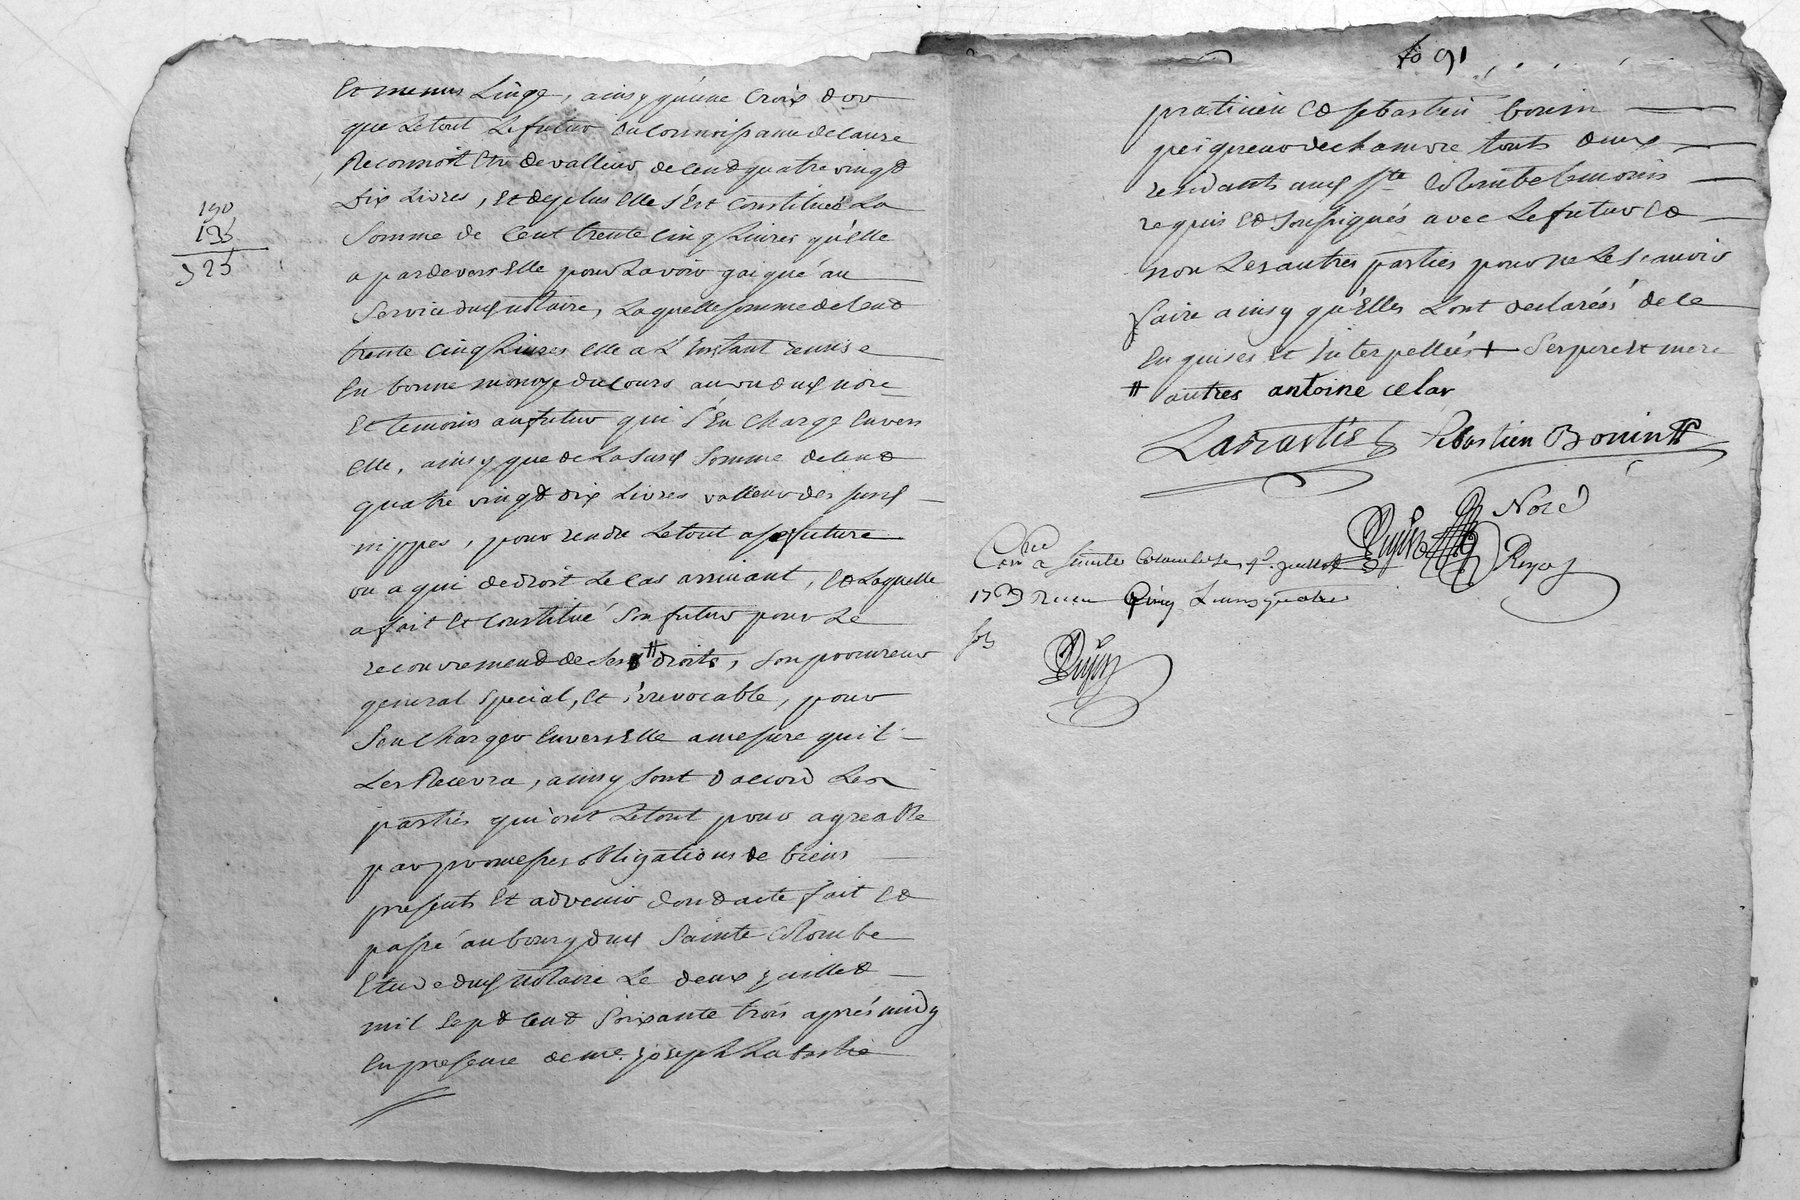 190
135
325
Et menus Linge, ainsy qu'une Croix d'or
que Le tout Le futur en Connoissance de cause
Reconnoit Etre de valleur de Cend quatre vingt
Dix Livres, Et de plus Elle s'Est Constituée La
Somme de Cent trente Cinq Livres qu'Elle
a par devers Elle pour L'avoir gaigné au
Service dud notaire, Laquelle somme de Cend
trente Cinq Livres elle a L'Instant remise
En bonne monoye du Cours au vu dud nore
Et temoins au futur qui s'En Charge Envers
Elle, ainsy que de La susd Somme de Cend
quatre vingt dix Livres valleur des susd
nippes, pour rendre Le tout a sa future
ou a qui de droit Le Cas arrivant, Ed Laquelle
a fait Et Constitué Son futur pour Le
recouvrement de ses # droits, Son procureur
general Special, Et irrevocable, pour
S'en Charger Envers Elle a mesure qu'il
Les Recevra, ainsy sont D'accord Les
parties qui ont Le tout pour agreable
par promesses obligations de biens
presents Et advenir Dond acte fait Ed
passé au bourg dud Sainte Colombe
Etude dud notaire Le deux juillet
mil Sept Cend Soixante trois après midy
En presence de me. joseph Labastie
fo 91
pratitien Ed sebastien bonin
peigneur de chanvre touts deux
residants aud Ste Colombe temoins
requis Ed soussignés avec Le futur Ed
non Les autres parties pour ne Le sçavoir
faire ainsy qu'Elles L'ont declarées de ce
Enquises Et Interpellées + Ses pere Et mere
# autres antoine celar
Labastie Sebastien Bonin
Noré
Royal
Con a Sainte Colombe Le juillet
1763 Receu Cinq Livres quatre
sols